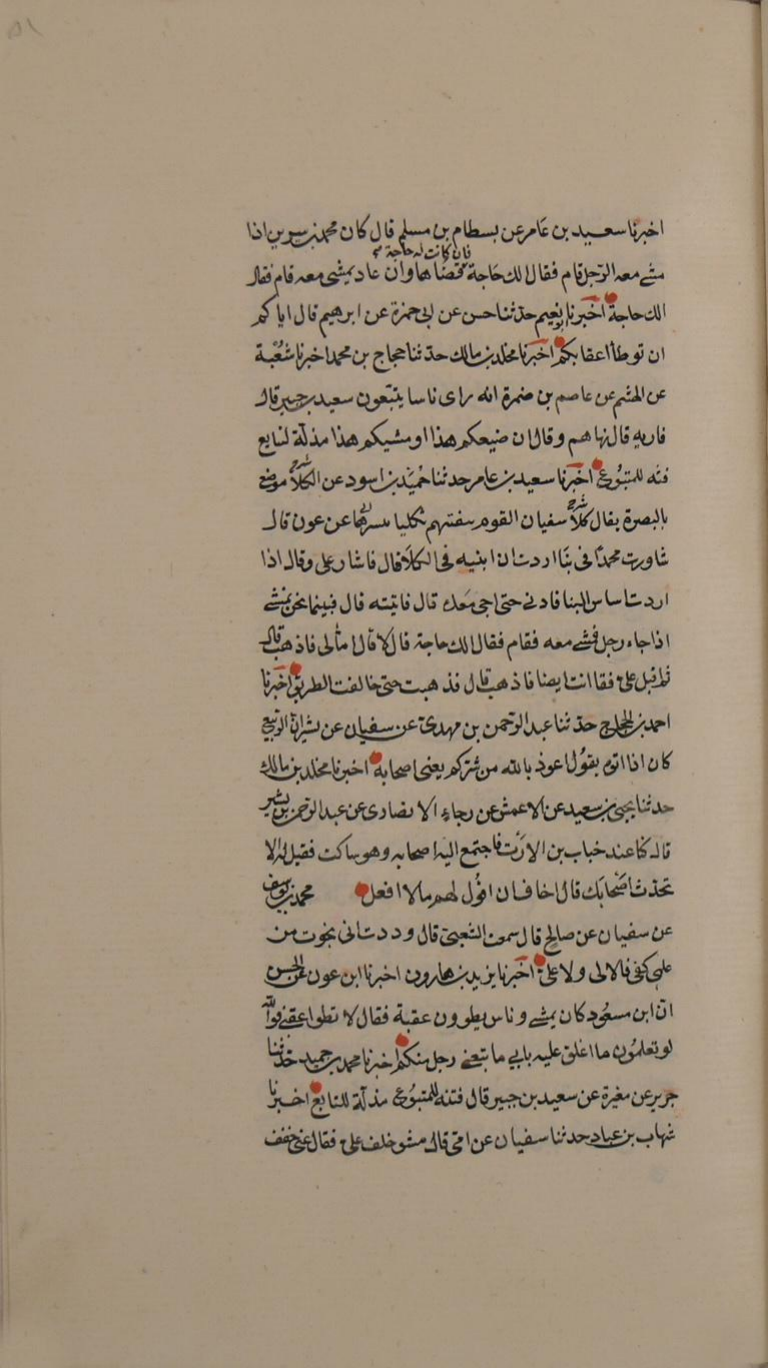 اخبرنا سعيد بن عامر عن بسطام بن مسلم قال كان محمد بن سيرين اذا
فان كانت له حاجة
مشے معه الرجل قام فقال الك حاجة قضاها وان عاد يمشى معه قام فقال
الك حاجة اخبرنا ابو نعيم حدثنا حسن عن ابى حمزة عن ابرهيم قال اياكم
ان توطأ اعقابكم اخبرنا مخلد بن مالك حدثنا حجاج بن محمد اخبرنا شعبة
عن الهيثم عن عاصم بن ضمرة انه راى ناسا يتبعون سعيد بن جبير قال
فاريه قال نهاهم وقال ان ضيعكم هذا او مشيكم هذا مذلة لتابع
فتنه للمتبوع اخبرنا سعيد بن عامر حدثنا حميد بن اسود عن
بالبصرة يقال كلاّ سفيان القوم سفنهم عن عون قال
شاورت محمدًا فى بنا اردت ان ابنيه فى الكلا قال فاشار على وقال اذا
اردت اساس البنا فاذنى حتى اجى معك قال فاتيته قال فبينما نحن نمشے
اذا جاء رجل فمشے معه فقام فقال الك حاجة قال لا قال امالى فاذهب قال
ثم اقبل على فقا انت ايضا فاذهب قال فذهبت حتى خالفت الطريق اخبرنا
احمد بن الحجاج حدثنا عبد الرحمن بن مهدى عن سفيان عن نسير ان الربيع
كان اذا اتوه يقول اعوذ بالله من شركم يعنى اصحابه اخبرنا مخلد بن مالك
حدثنا يحيى بن سعيد عن الاعمش عن رجاء الانصارى عن عبد الرحمن بن بشير
قال كنا عند خباب بن الارت فاجتمع اليه اصحابه وهو ساكت فقيل له الا
تحدث اصحابك قال اخاف ان اقول لهم مالا افعل محمد بن يوسف
عن سفيان عن صالح قال سمعت الشعبى قال وددت انى نجوت من
علمى كفافا لا لى ولا على اخبرنا يزيد بن هارون اخبرنا ابن عون عن الحسن
ان ابن مسعود كان يمشے وناس يطوون عقبة فقال لا تطوا عقبے فوالله
لو تعلمون ما اغلق عليه بابى ما تبعنے رجل منكم اخبرنا محمد بن حميد حدثنا
جرير عن مغيرة عن سعيد بن جبير قال فتنه للمتبوع مذلة للتابع اخبرنا
شهاب بن عباد حدثنا سفيان عن امى قال مشو خلف على فقال عنى خفف